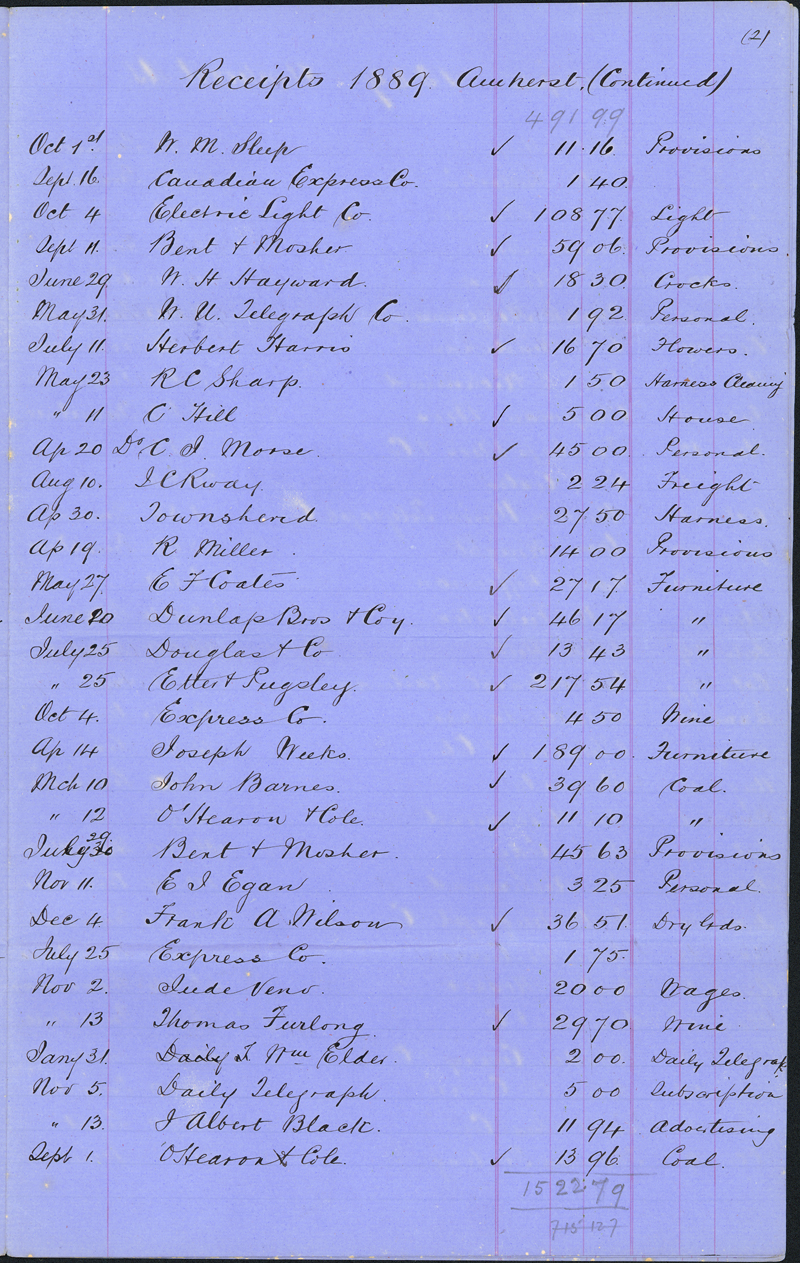 (2)
Receipts 1889. Amherst, (Continued)
491 99
Oct 1st. W. M. Sleep ✓ 11.16. Provisions
Sept. 16. Canadian Express Co. 1 40.
Oct 4 Electric Light Co. ✓ 108 77. Light
Sept 11. Bent & Mosher ✓ 59 06. Provisions.
June 29. W. H Hayward. ✓ 18 30. Crocks.
May 31. W. U. Telegraph Co. 1 92. Personal.
July 11. Herbert Harris ✓ 16 70 Flowers.
May 23 R C Sharp. 1 50 Harness Cleaning
" 11 C Hill ✓ 5 00 House
Ap 20 Do C. I. Morse. ✓ 45 00. Personal.
Aug 10. I C Rway. 2 24 Freight
Ap 30. Townshend. 27 50 Harness.
Ap 19. R Miller. 14 00 Provisions
May 27. E F Coates ✓ 27 17. Furniture
June 20 Dunlap Bros & Coy. ✓ 46 17 "
July 25 Douglas & Co ✓ 13 43 "
" 25 Etter & Pugsley. ✓ 217 54 "
Oct 4. Express Co. 4 50 Wine
Ap 14 Joseph Weeks. ✓ 189 00. Furniture
Mch 10 John Barnes. ✓ 39 60 Coal.
" 12 O'Hearon & Cole. ✓ 11 10 "
July 29 30 Bent & Mosher. 45 63 Provisions
Nov 11. E J Egan 3 25 Personal.
Dec 4. Frank A Wilson ✓ 36 51. Dry Gds.
July 25 Express Co. 1 75.
Nov 2. Jude Veno. 20 00 Wages.
" 13 Thomas Furlong. ✓ 29 70 Wine
Jany 31. Daily T. Wm Elder. 2 00. Daily Telegraph
Nov 5. Daily Telegraph. 5 00 Subscription
" 13. J Albert Black. 11 94 Advertising
Sept 1. O'Hearon & Cole. ✓ 13 96. Coal.
1522 79